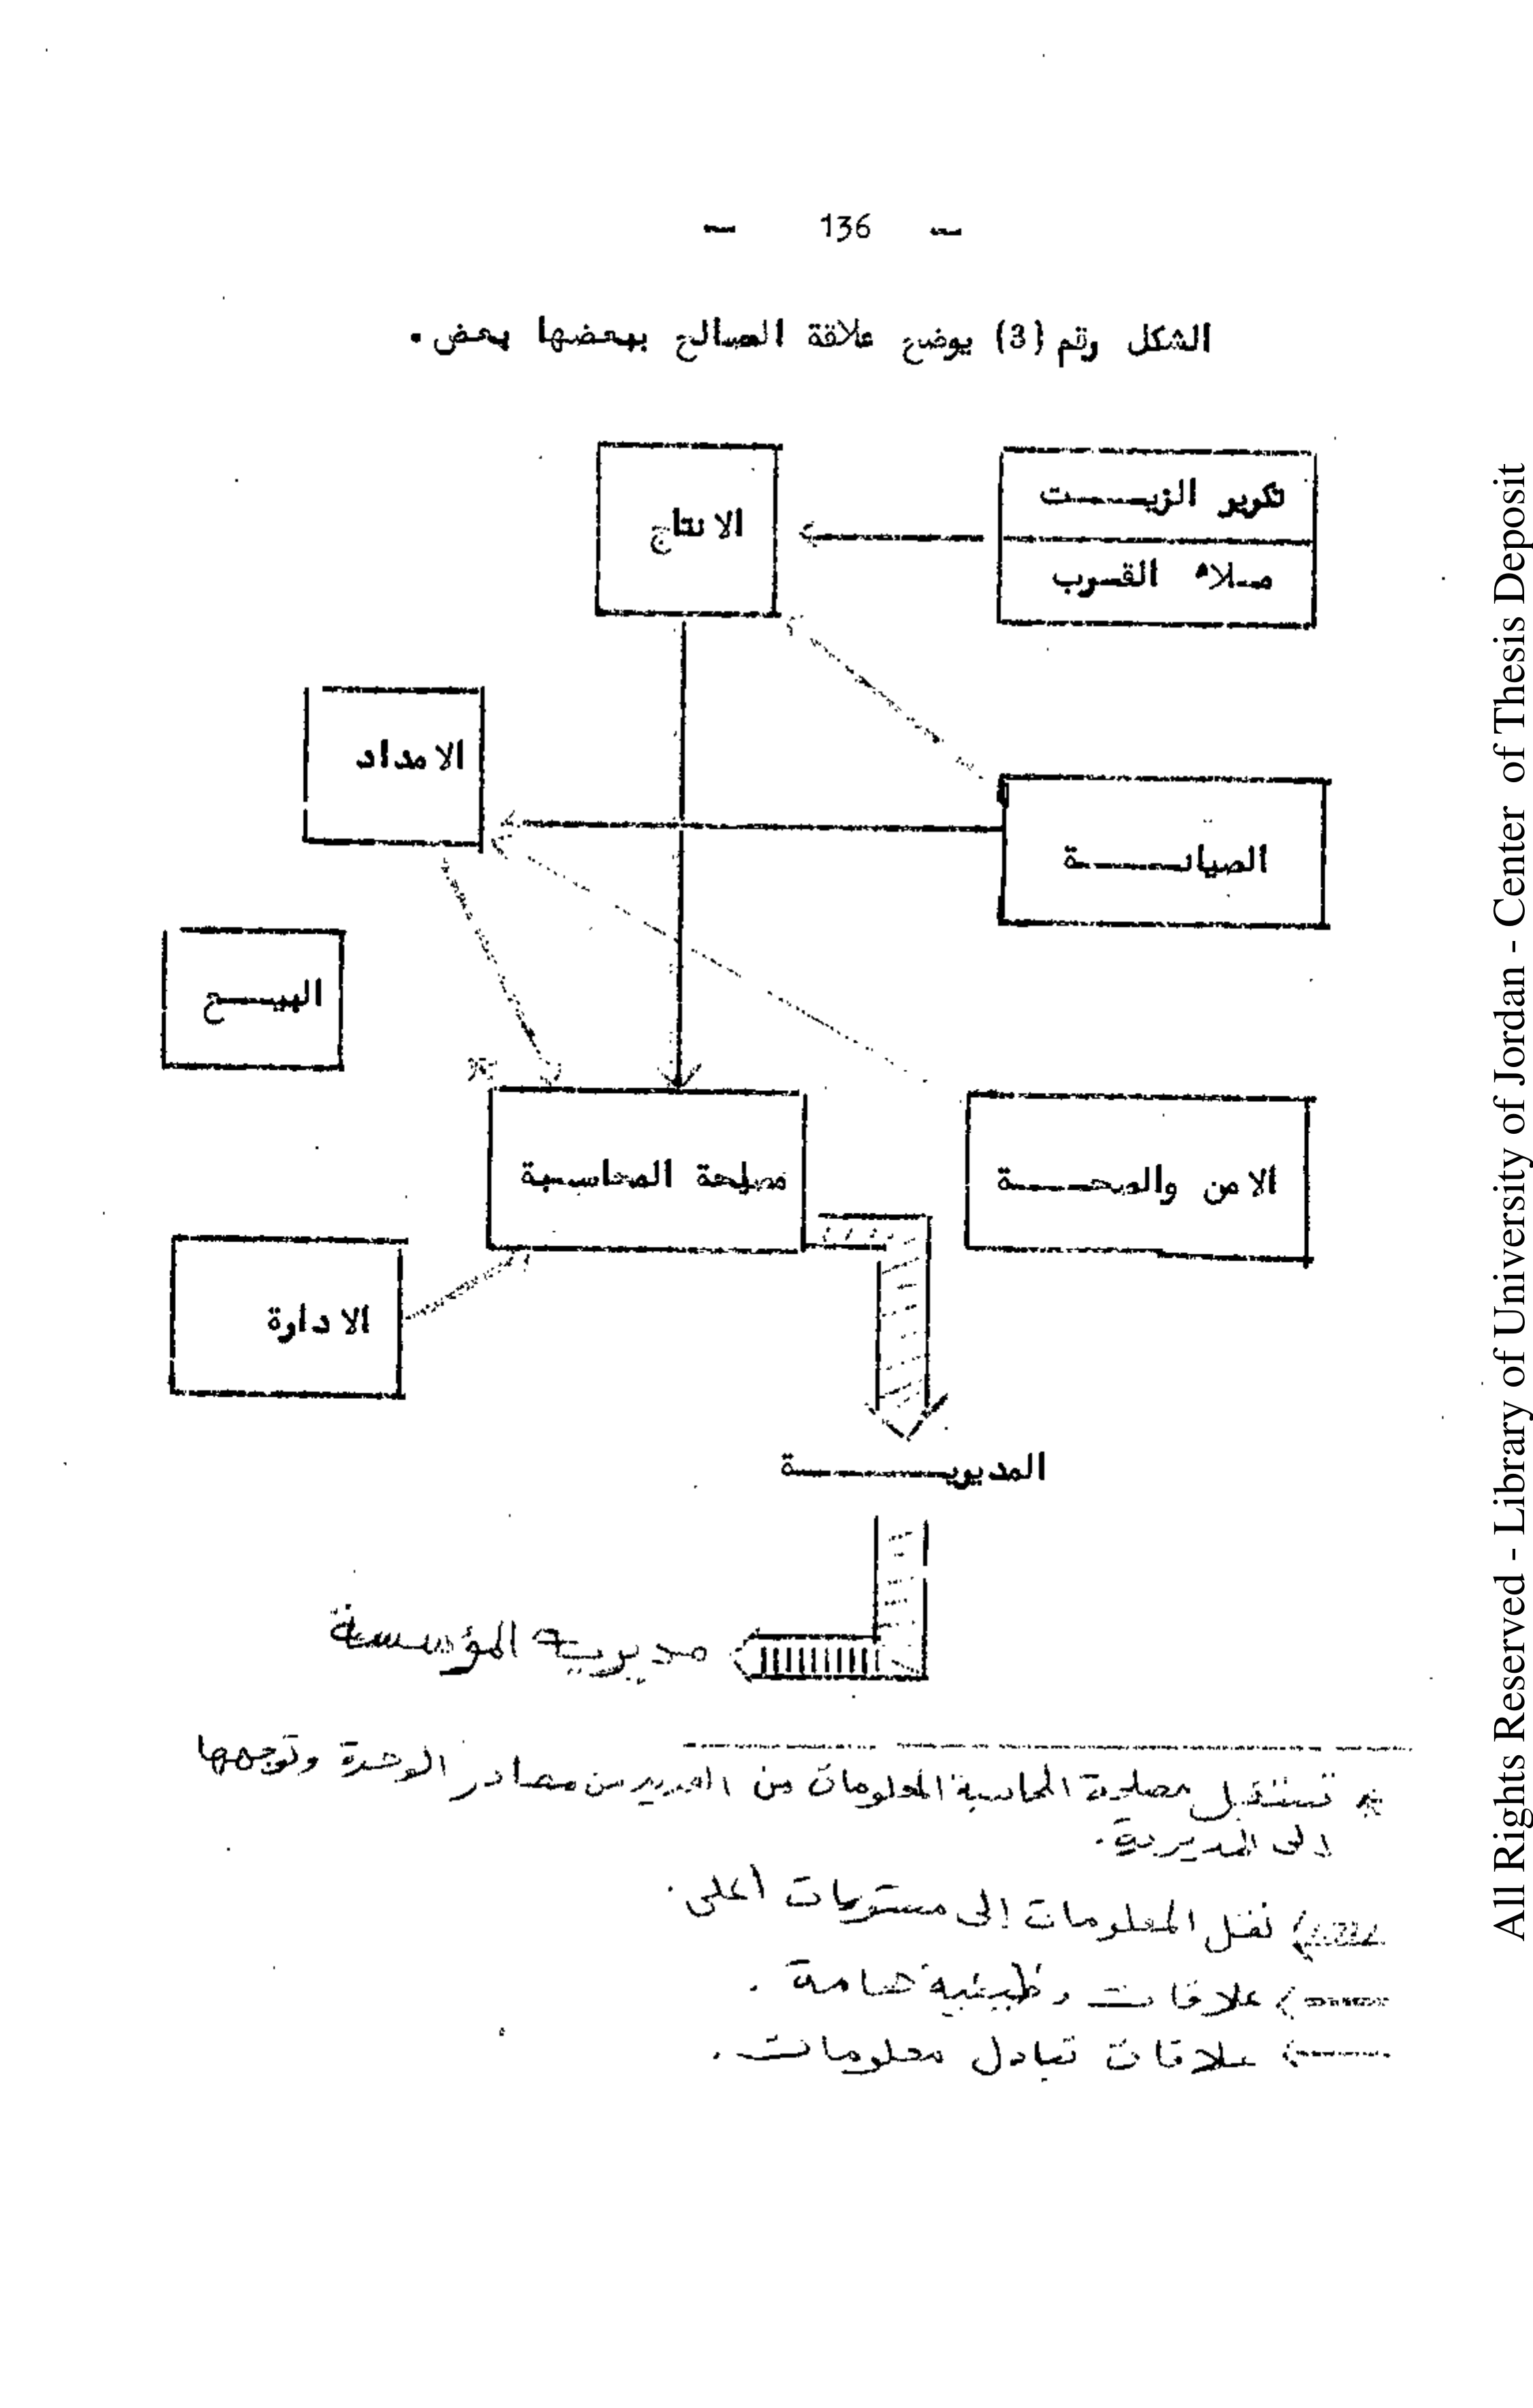 - 136 -
الشكل رقم (3) يوضح علاقة المصالح ببعضها بعض.
تكرير الزيت
الانتاج
الامداد
الصيانة
البيع
مصلحة المحاسبة
الامن والصحة
الادارة
المديرية
مديرية المؤسسة
* تستقبل مصلحة المحاسبة المعلومات من العديد من مصادر الوحدة وتوجهها
إلى المديرية.
نقل المعلومات إلى مستويات أعلى.
علاقات وظيفية هامة.
علاقات تبادل معلومات.
All Rights Reserved - Library of University of Jordan - Center of Thesis Deposit